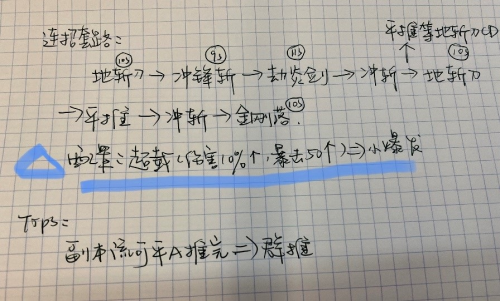 连招套路：
平推等地斩刀CD
10s 9s 11s 10s
地斩刀→冲锋斩→劫炎剑→冲斩→地斩刀
10s
→平推→冲斩→金刚落.
配置：超载（伤害10%↑，暴击50↑）⇒小爆发
Trps：
副本流可平A推完⇒群推